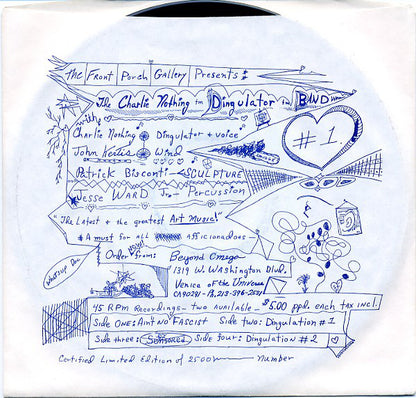 The Front Porch Gallery Presents:
The Charlie Nothing in Dingulator in BAND
with
Charlie Nothing Dingulator + voice
John Wind
Patrick Bisconti - SCULPTURE
Jesse WARD Jr - Percussion
"The Latest & the greatest Art Music!"
A must for all afficionados
Order from: Beyond Omega
1319 W. Washington Blvd.
Venice of the Universe
whatsup Doc
45 RPM Recordings - two available - $5.00 ppd. each tax incl.
Side One: Ain't No Fascist Side two: Dingulation #1
Side three: Side four: Dingulation #2
Certified Limited Edition of 2500 number
#1